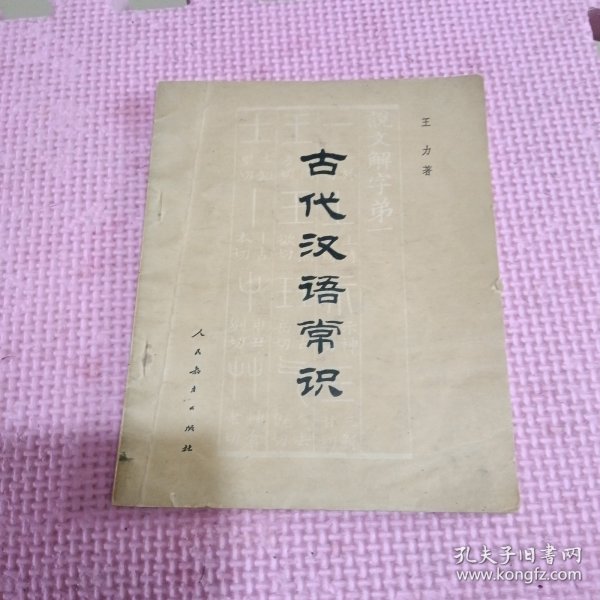 王力著
古代汉语常识
人民教育出版社
说文解字弟一
孔夫子旧书网
www.kongfz.com